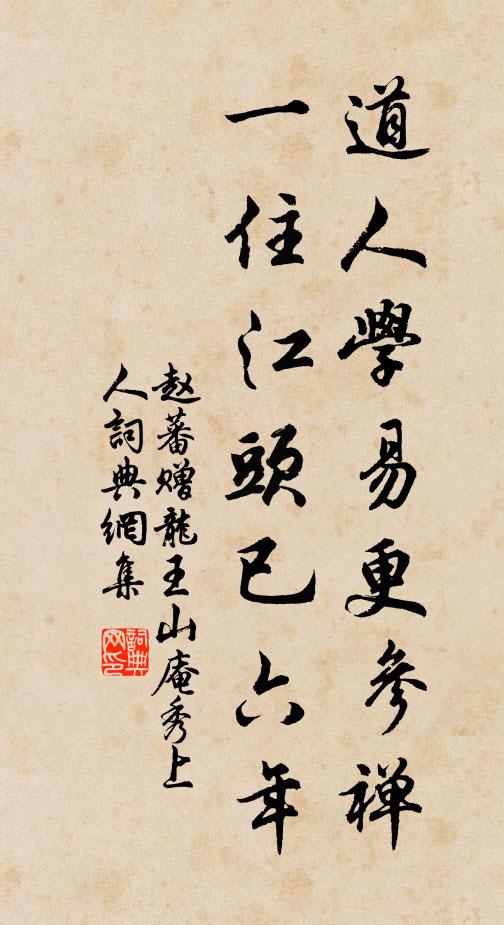 道人學易更參禅
一住江頭已六年
赵蕃赠龍王山庵秀上
人詞典網集
詞典網印